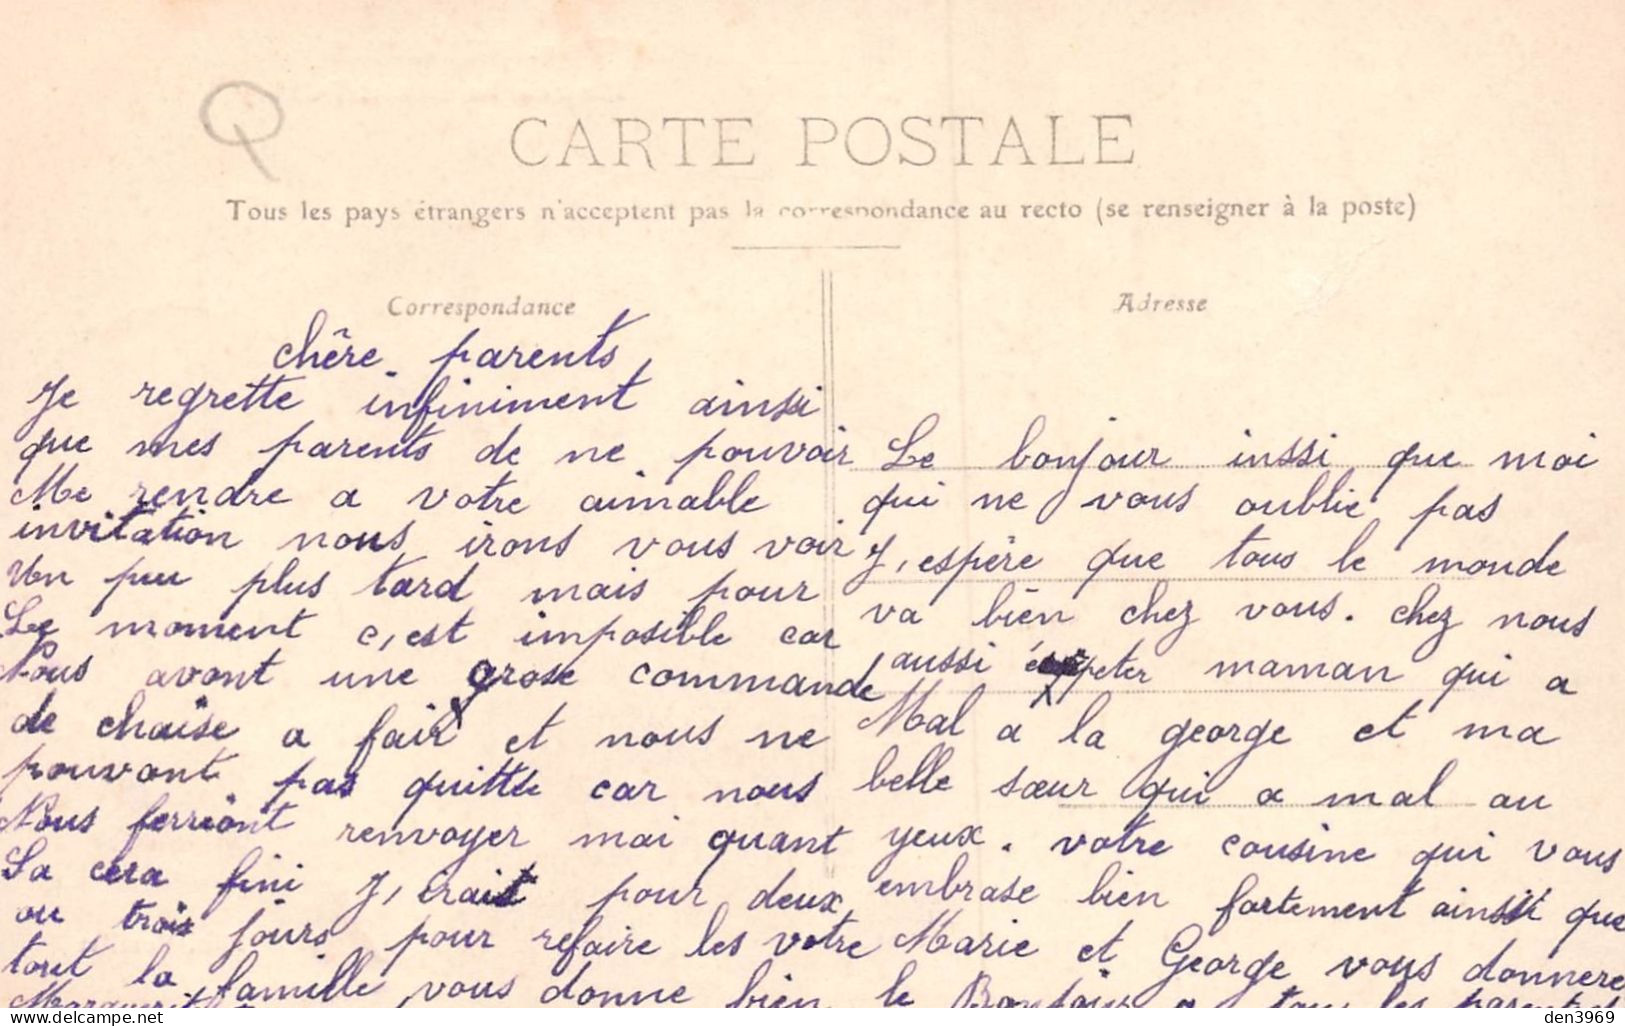 CARTE POSTALE
Tous les pays étrangers n'acceptent pas la correspondance au recto (se renseigner à la poste)
Correspondance
chêre parents,
Je regrette infiniment ainsi
que mes parents de ne pouvoir
Me rendre a votre aimable
invitation nous irons vous voir
Un peu plus tard mais pour
Le moment c,est imposible car
Nous avont une grose commande
de chaise a fair et nous ne
pouvont pas quitte car nous
Nous ferriont renvoyer mai quant
Sa cera fini J,irait pour deux
ou trois jours pour refaire les votre
tout la famille vous donne bien le Bonjour a tous les parents
Adresse
Le bonjour inssi que moi
qui ne vous oublie pas
J,espère que tous le monde
va bien chez vous. chez nous
aussi maman qui a
Mal a la george et ma
belle sœur qui a mal au
yeux. votre cousine qui vous
embrase bien fortement ainsi que
Marie et George vous donnere
den3969